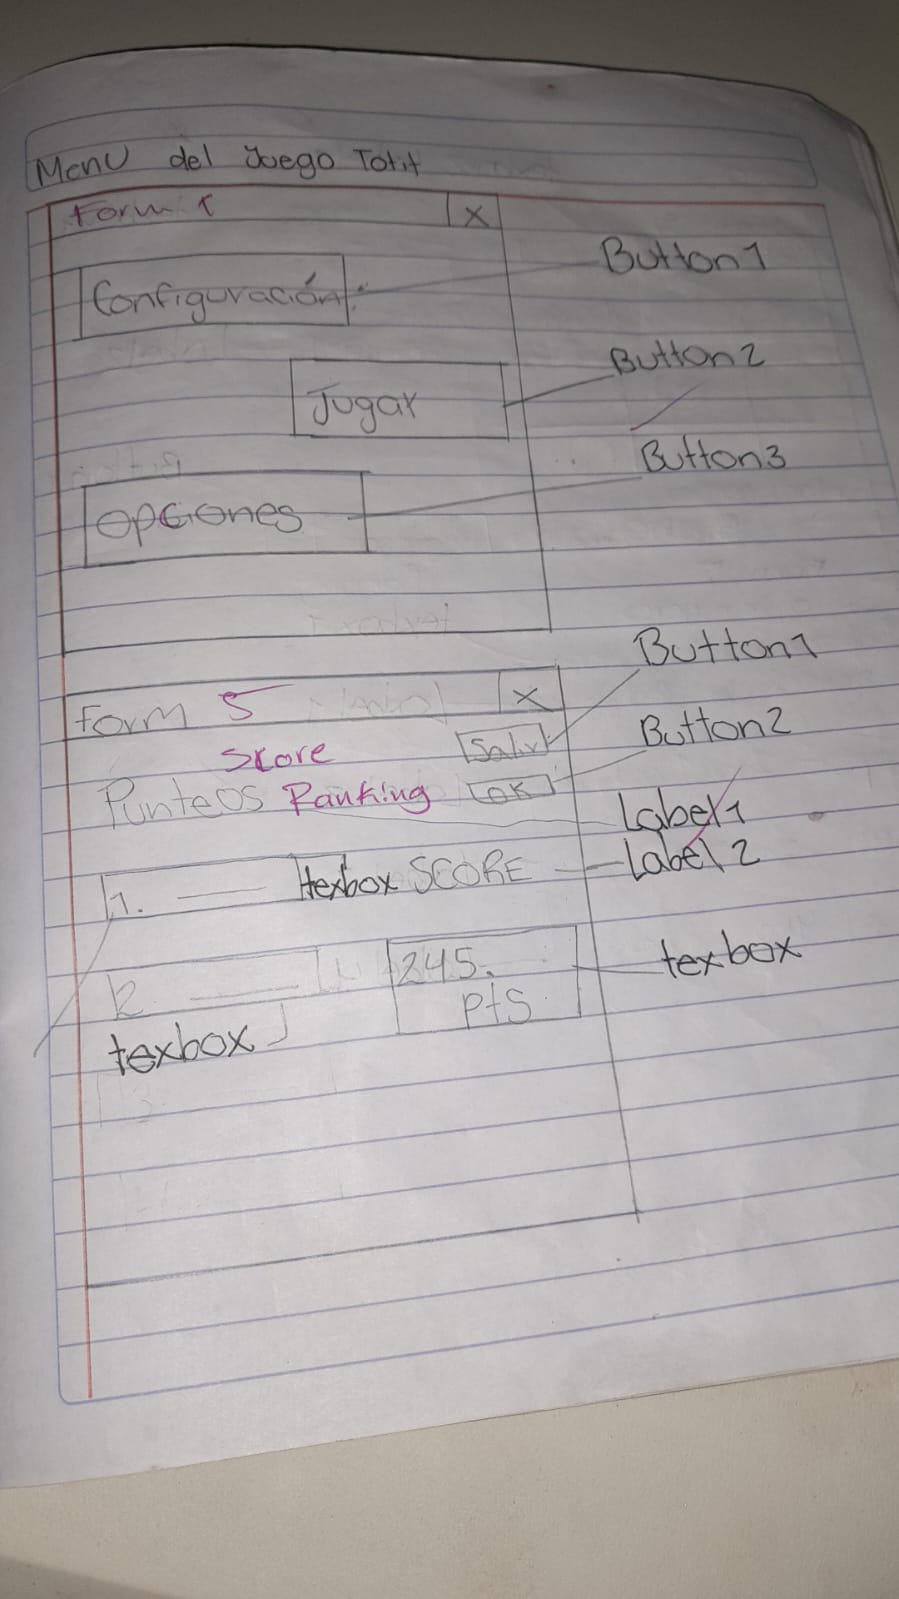 Menu del Juego Totit
Form 1 X
Configuración
Button1
Jugar
Button2
Opciones
Button3
Form 5 X
Button1
Score
Salir
Button2
Punteos Ranking
OK
Label1
1. texbox SCORE
Label2
2
245.
Pts
texbox
texbox